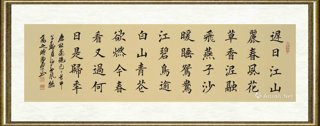 遲日江山
麗春風花
草香泥融
飛燕子沙
暖睡鴛鴦
江碧鳥逾
白山青花
欲燃今春
看又過何
日是歸年